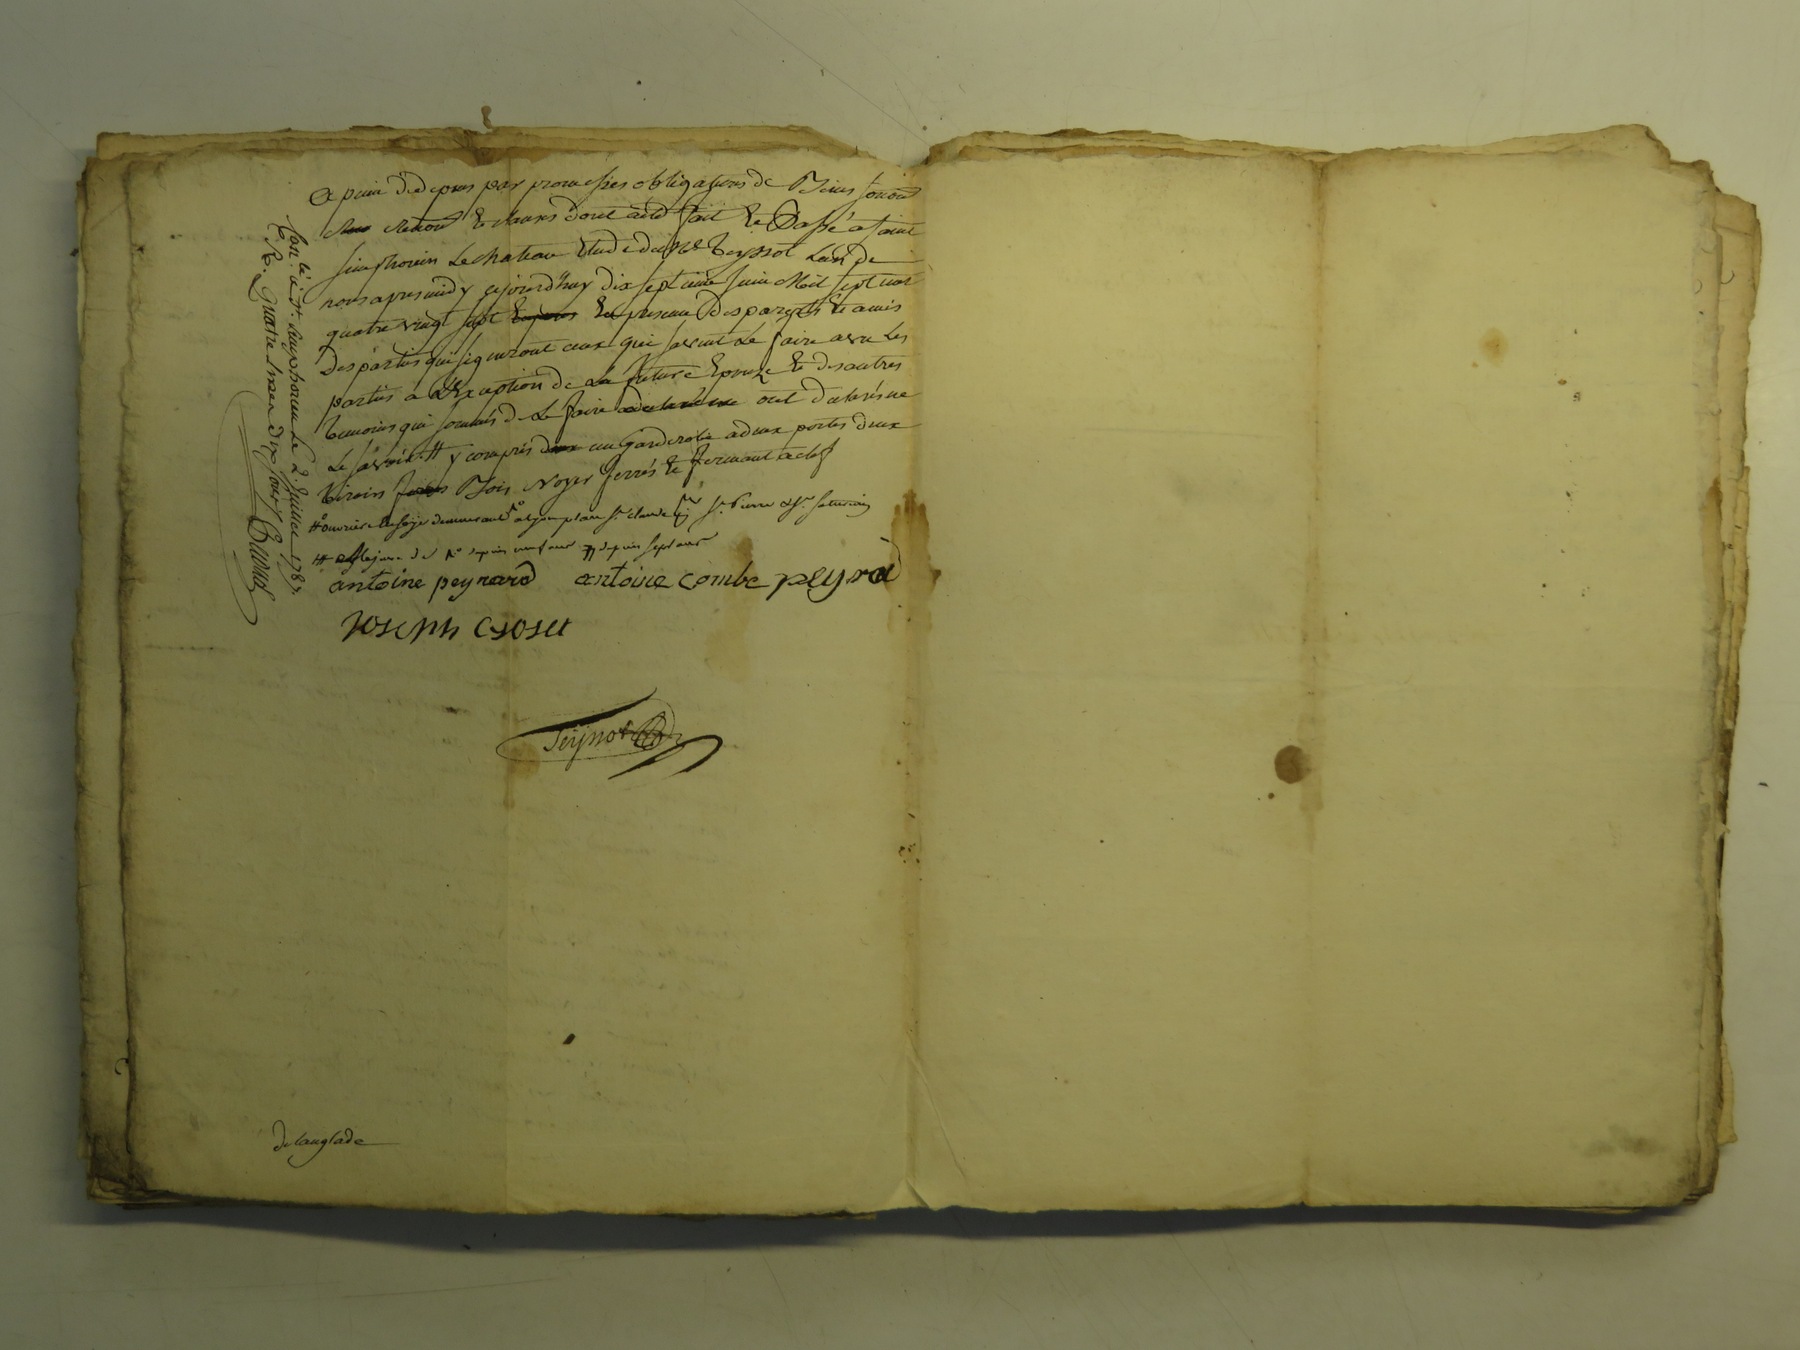 a peine de depens par promesses obligations de Biens soumi
renon et clauses dont acte fait et Passé a Saint
simphorien Le chateau Etude du Ne Teyssot L'un de
nous apres midy ce jourd'huy dix septieme juin Mil sept cent
quatre vingt sept en presence des parents et amis
des parties qui signeront ceux qui savent Le faire avec Les
parties a L'Exception de La future Epouze et des autres
temoins qui sommés de Le faire ont declaré ne
Le savoir. # y compris un garderobe a deux portes deux
tiroirs Bois Noyer ferrés et fermant a clef
# ouvriere en soye demeurant a Lyon place St. claude St. Pierre & St. Saturnin
depuis depuis sept ans
antoine peyrard antoine combe peyrad
Joseph
Teyssot
Con.lé a St. simphorien le 2. juillet 1787.
R. quatre livres dix sous
Delanglade